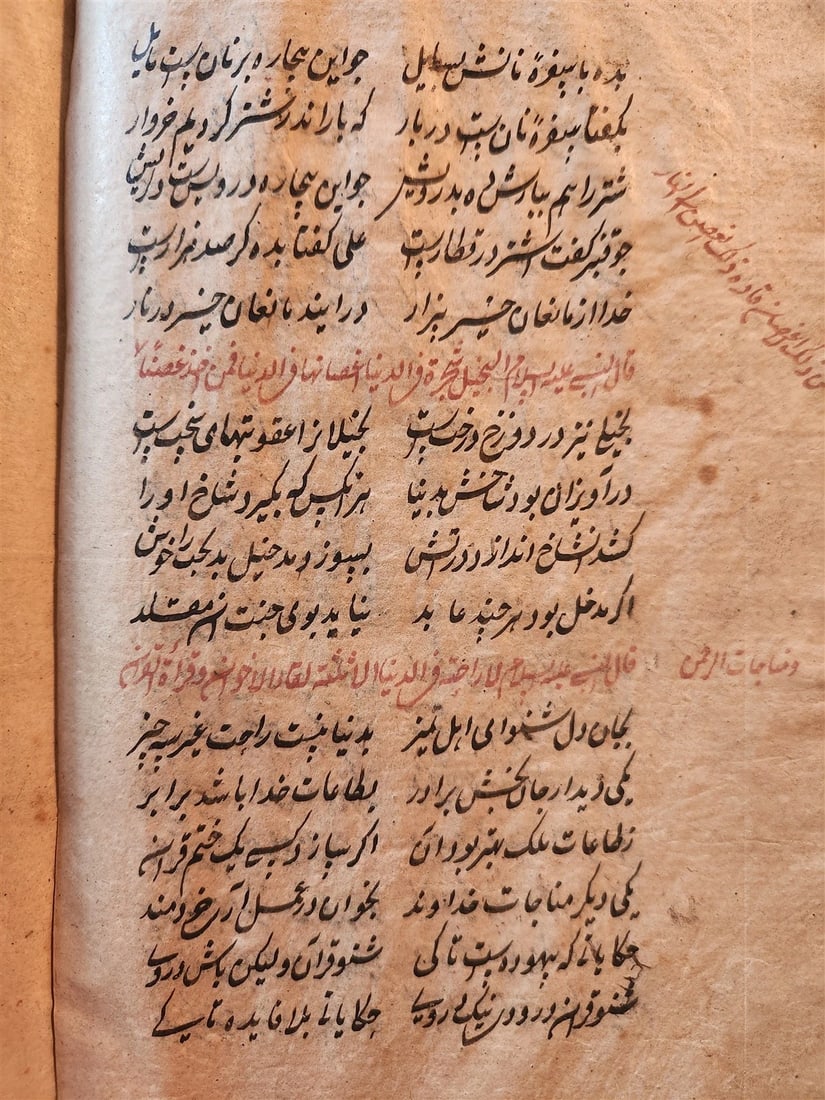 بده با سفرهٔ نانش بسایل چو این بیچاره بر نان هست مایل
بگفتا سفرهٔ نان هست در بار که بار اندر شتر کردیم خروار
شتر را هم ببارش ده بدرویش چو این بیچاره درویست دلریش
چو قنبر گفت اشتر در قطارست علی گفتا بده گر صد هزارست
خدا از مانعان خیر بیزار درایند مانعان خیر در نار
قال النبی علیه السلام البخیل شجرة فی الدنیا اغصانها فی الدنیا فمن اخذ غصنا
بخیلی نیز در دوزخ درختست بخیلانرا عقوبتهای سختست
درآویزان بود شاخش بدنیا هر آنکس که بگیرد شاخ او را
کشد آنشاخ اندازد در آتش بسوزد بخیل بدبخت را خوش
اگر مدخل بود هر چند عابد نیاید بوی جنت آن مقلد
قال النبی علیه السلام لا راحة فی الدنیا الا ثلثة لقاء الاخوان و قرأة القرآن و مناجات الرحمن
بجان دل شنو ای اهل تمیز بدنیا نیست راحت غیر سه چیز
یکی دیدار جان بخش برادر بطاعات خدا باشد برابر
زطاعات ملک بهتر بود آن اگر سازد کسی یک ختم قرآن
یکی دیگر مناجات خداوند بخوان در عمل آری خردمند
حکایاتی که بیهوده است تا کی شنو قرآن ولیکن باش در وی
شنو قرآن درو نیک روی حکایاتی بلا فایده تا کی